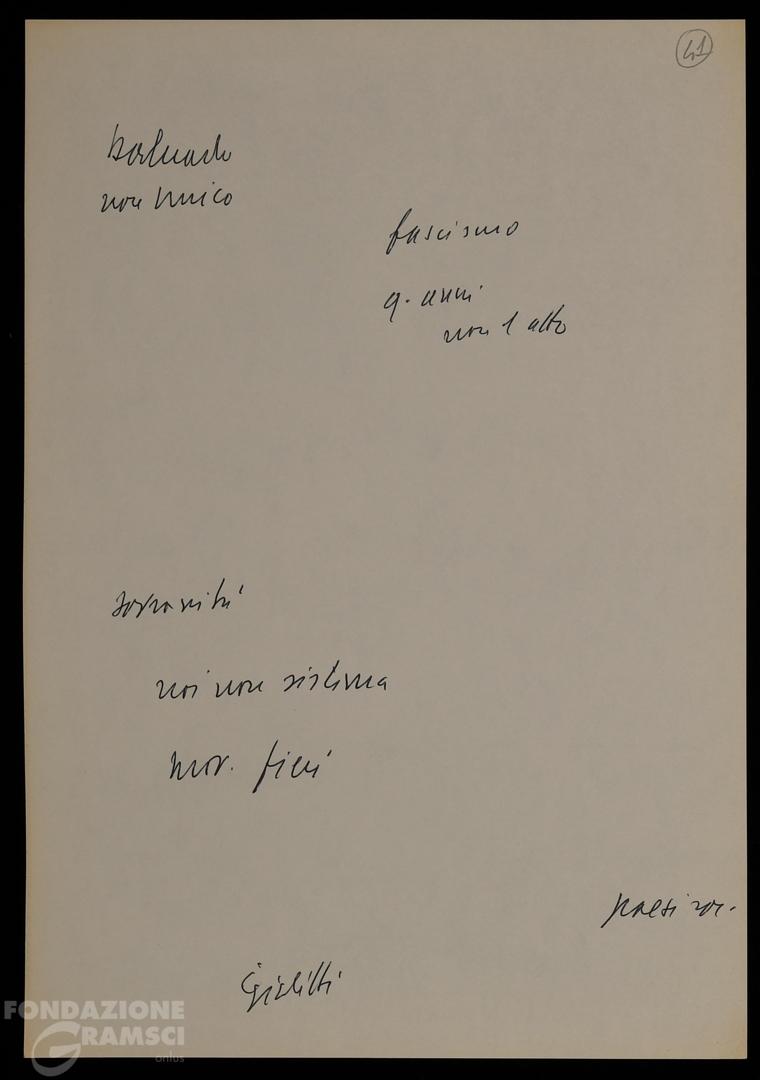 41
baluardo
non unico
fascismo
q. anni
non 1 atto
sovranità
noi non sistema
mov. fieri
paesi soc.
Giolitti
FONDAZIONE
GRAMSCI
onlus